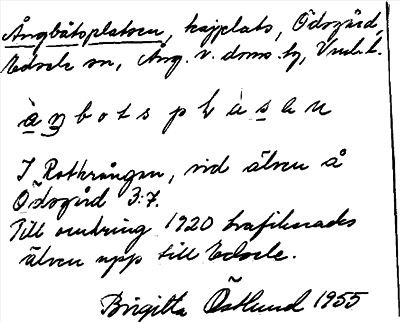 Ångbåtsplatsen, kajplats, Ödsgård,
Edsele sn, Ång. v. doms. tg, Vnrl. l.
àŋbotsplàsan
I Rotkrången, vid älven å
Ödsgård 3:7.
Till omkring 1920 trafikerades
älven upp till Edsele.
Birgitta Östlund 1955